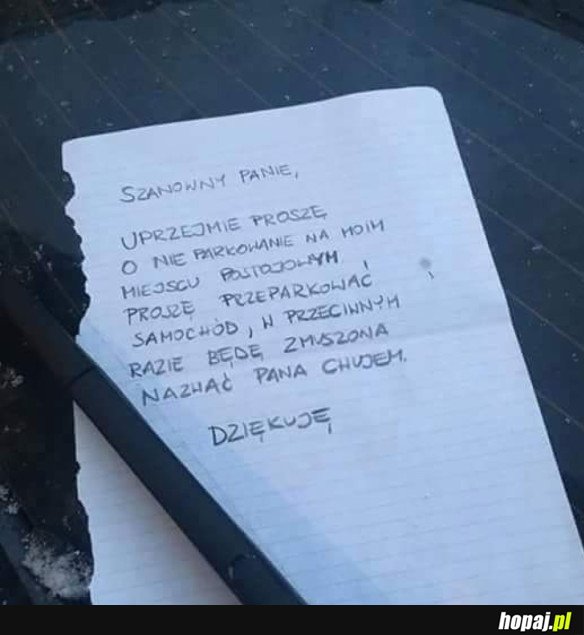 SZANOWNY PANIE,
UPRZEJMIE PROSZĘ
O NIE PARKOWANIE NA MOIM
MIEJSCU POSTOJOWYM,
PROSZĘ PRZEPARKOWAĆ
SAMOCHÓD, W PRZECIWNYM
RAZIE BĘDĘ ZMUSZONA
NAZWAĆ PANA CHUJEM.
DZIĘKUJĘ
hopaj.pl